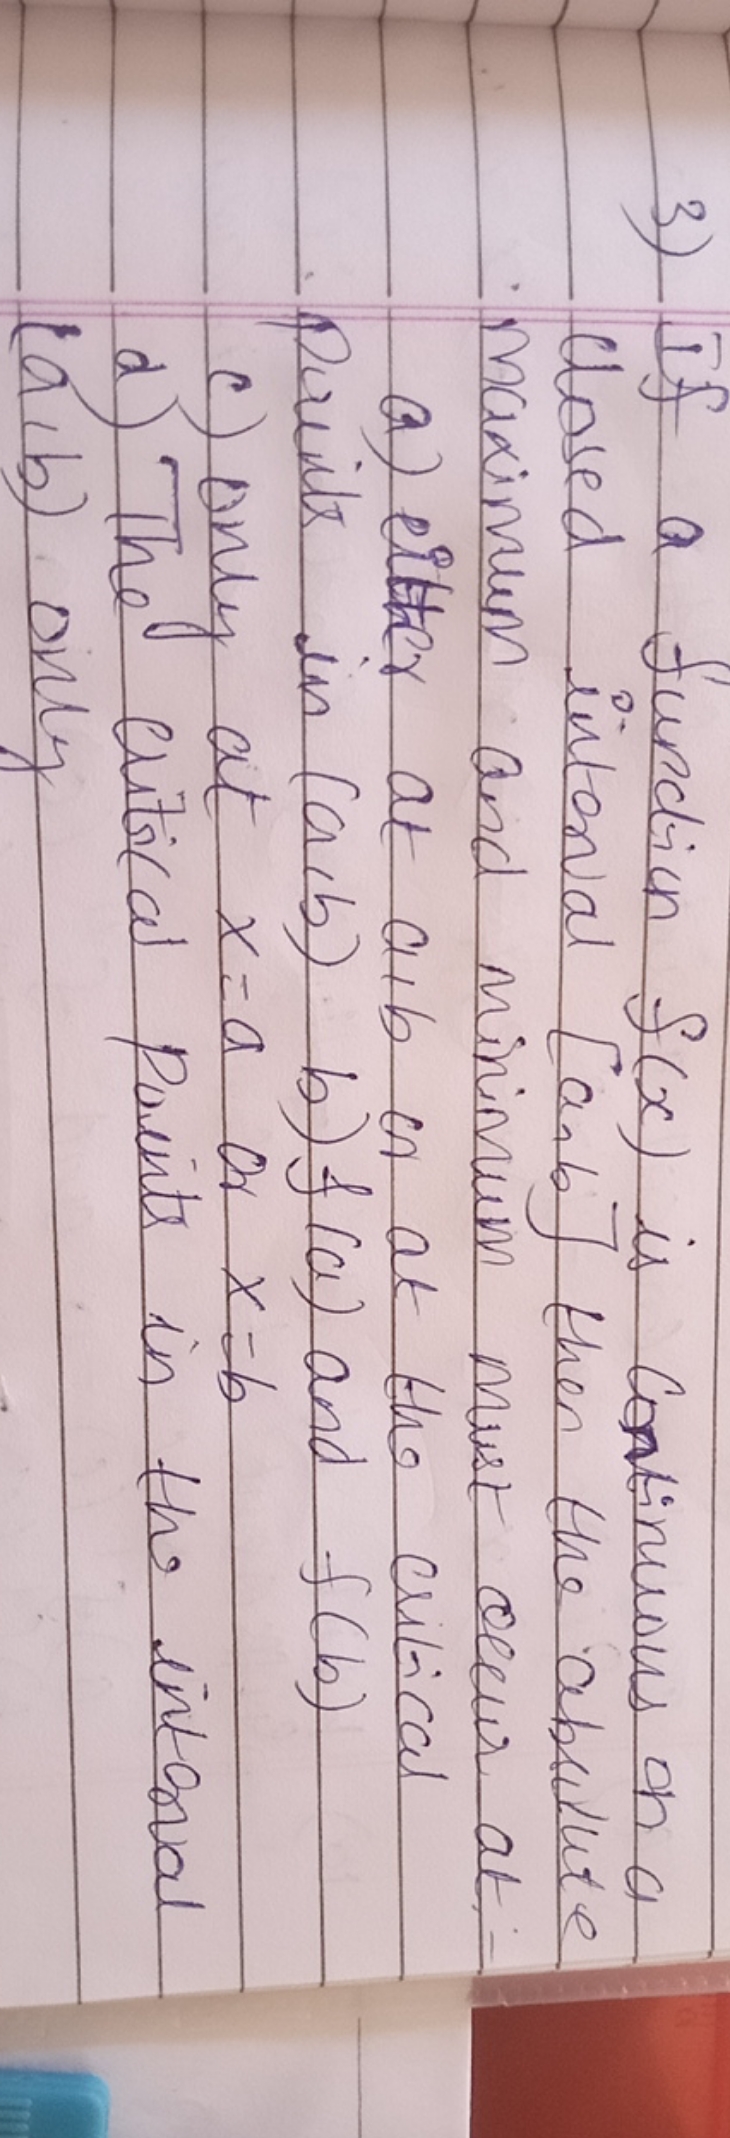 3) If a function f(x) is continuous on a
closed interval [a,b] then the absolute
maximum and minimum must occur at:-
a) either at a,b or at the critical
points in (a,b) b) f(a) and f(b)
c) only at x=a or x=b
d) The critical points in the interval
(a,b) only